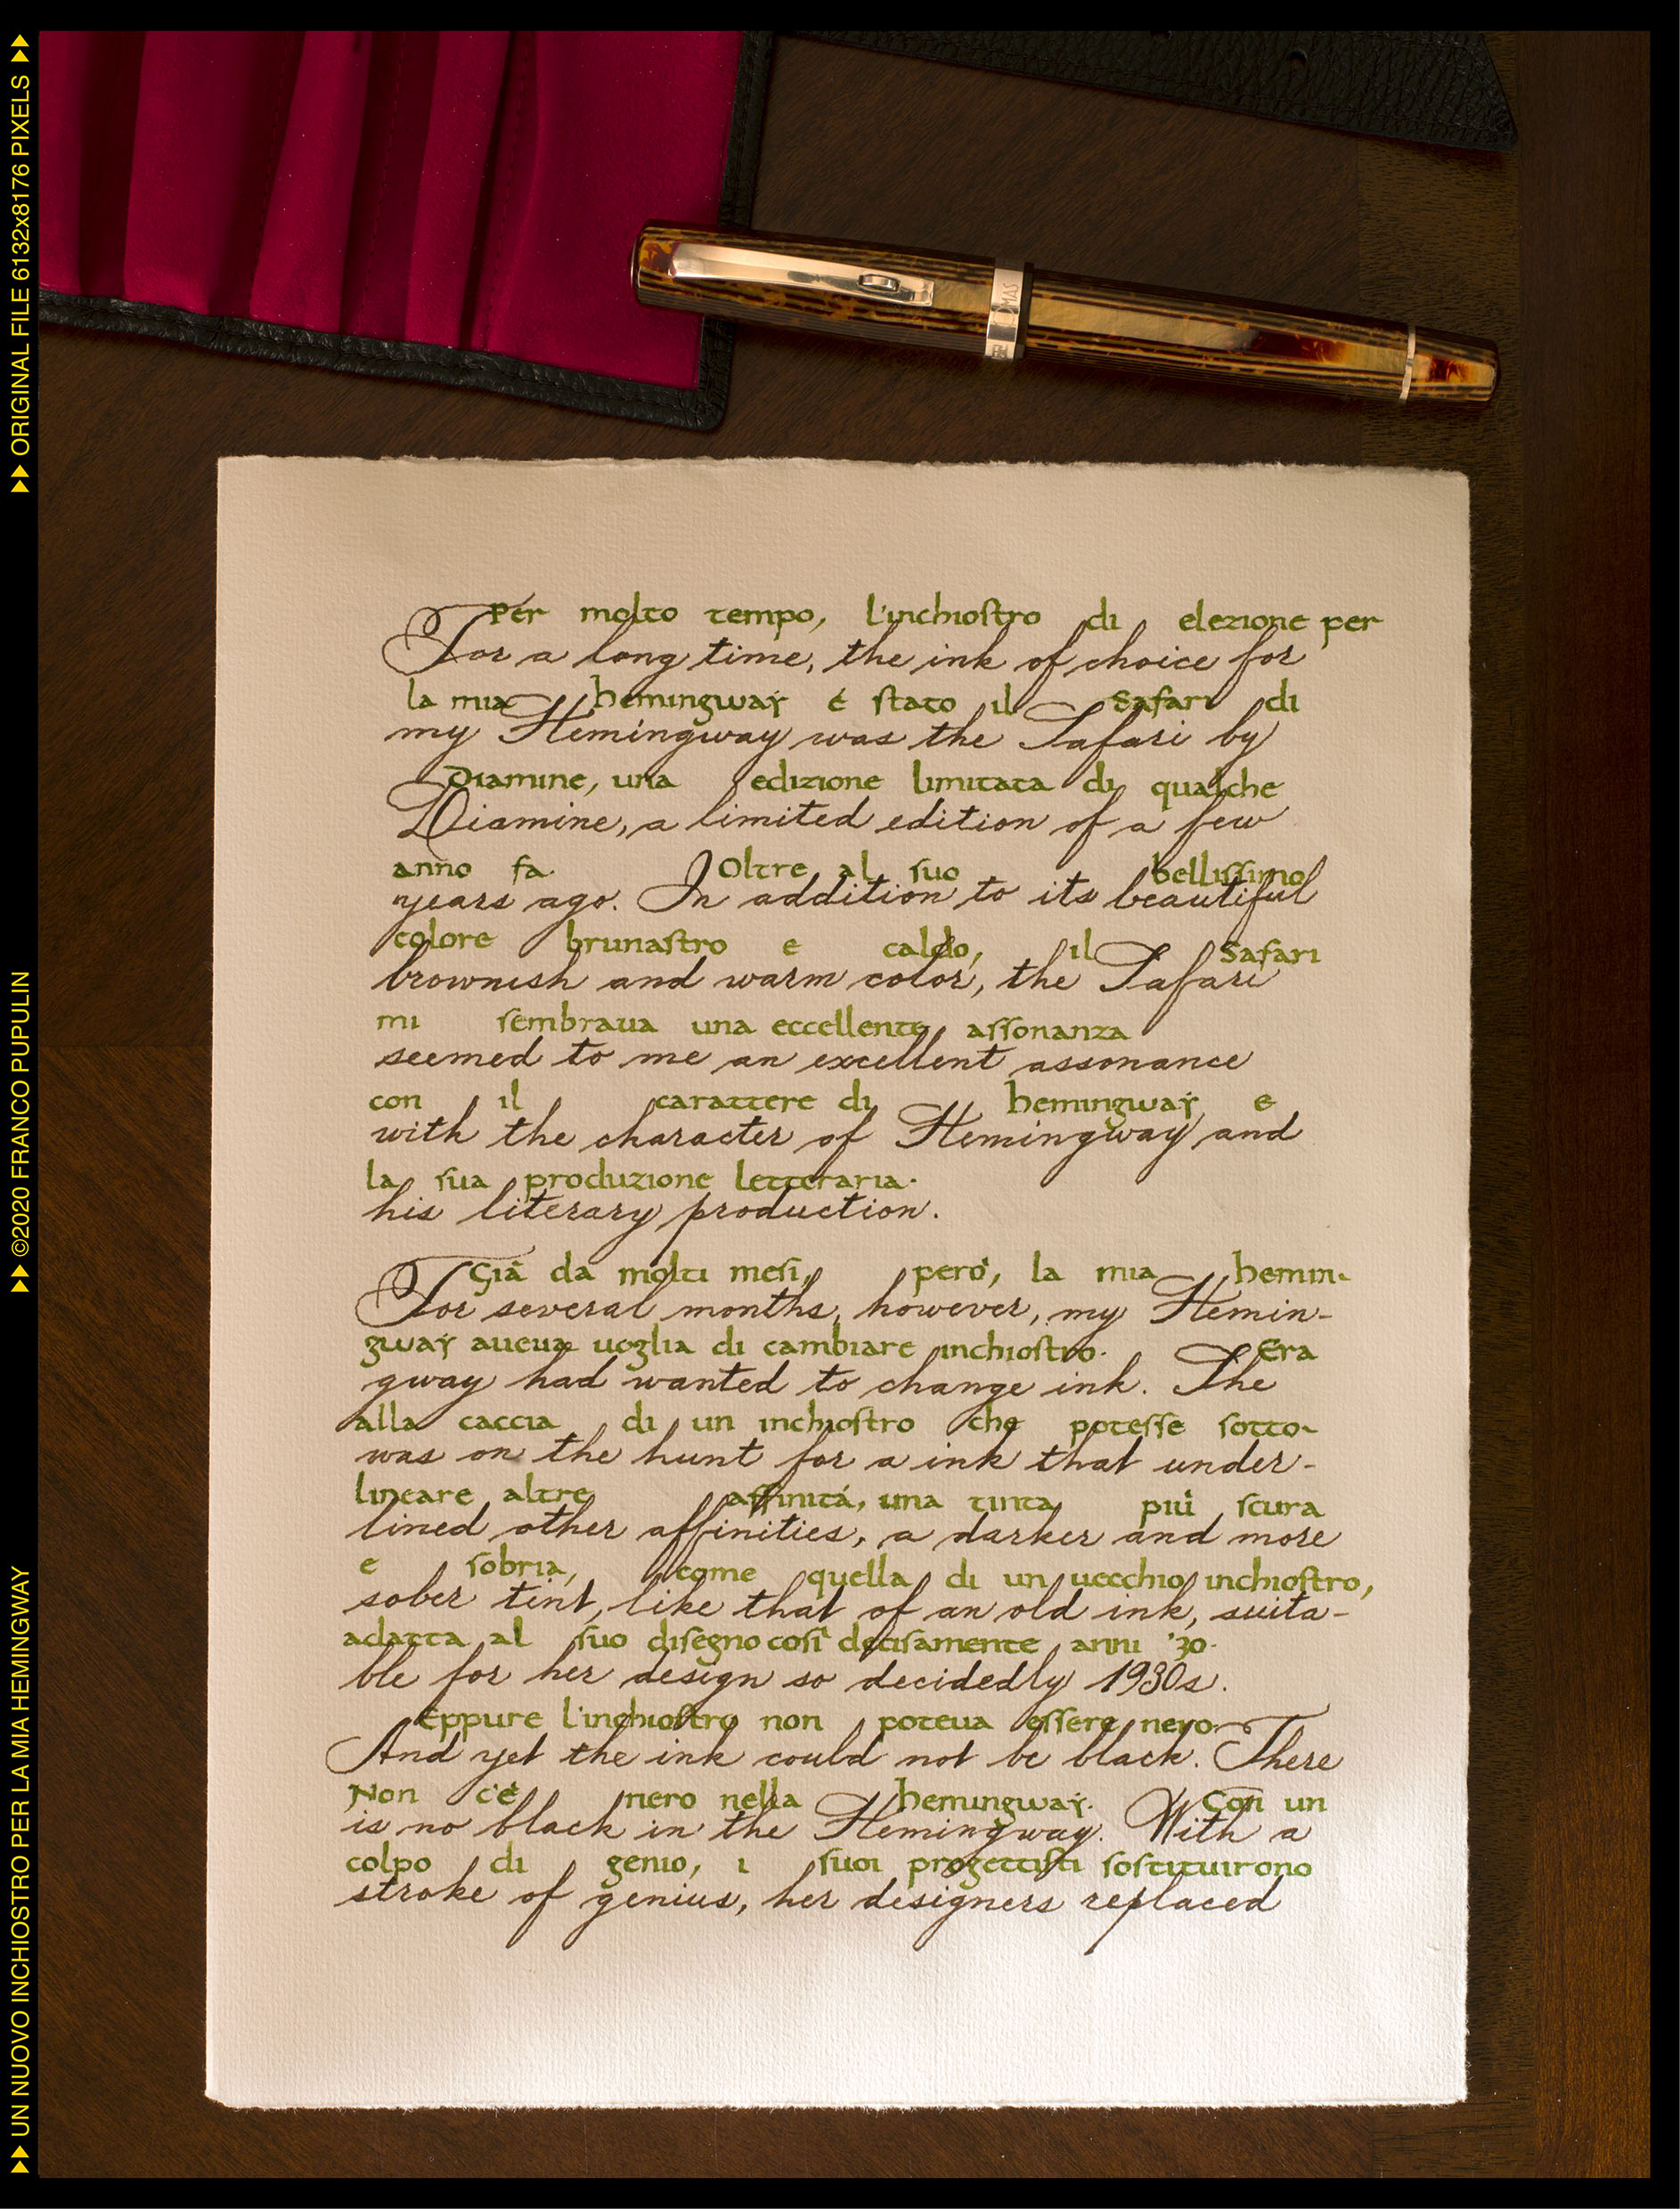 ▶▶ UN NUOVO INCHIOSTRO PER LA MIA HEMINGWAY ▶▶ ©2020 FRANCO PUPULIN ▶▶ ORIGINAL FILE 6132x8176 PIXELS ▶▶
OMAS
Per molto tempo, l'inchiostro di elezione per
For a long time, the ink of choice for
la mia hemingway é stato il Safari di
my Hemingway was the Safari by
Diamine, una edizione limitata di qualche
Diamine, a limited edition of a few
anno fa. Oltre al suo bellissimo
years ago. In addition to its beautiful
colore brunastro e caldo, il Safari
brownish and warm color, the Safari
mi sembrava una eccellente assonanza
seemed to me an excellent assonance
con il carattere di hemingway e
with the character of Hemingway and
la sua produzione letteraria.
his literary production.
Già da molti mesi, però, la mia hemin-
For several months, however, my Hemin-
gway aueua uoglia di cambiare inchiostro. Era
gway had wanted to change ink. She
alla caccia di un inchiostro che potesse sotto-
was on the hunt for a ink that under-
lineare altre affinitá, una tinta più scura
lined other affinities, a darker and more
e sobria, come quella di un uecchio inchiostro,
sober tint, like that of an old ink, suita-
adatta al suo disegno così decisamente anni '30.
ble for her design so decidedly 1930s.
Eppure l'inchiostro non poteua essere nero.
And yet the ink could not be black. There
Non c'è nero nella hemingway. Con un
is no black in the Hemingway. With a
colpo di genio, i suoi progettisti sostituirono
stroke of genius, her designers replaced